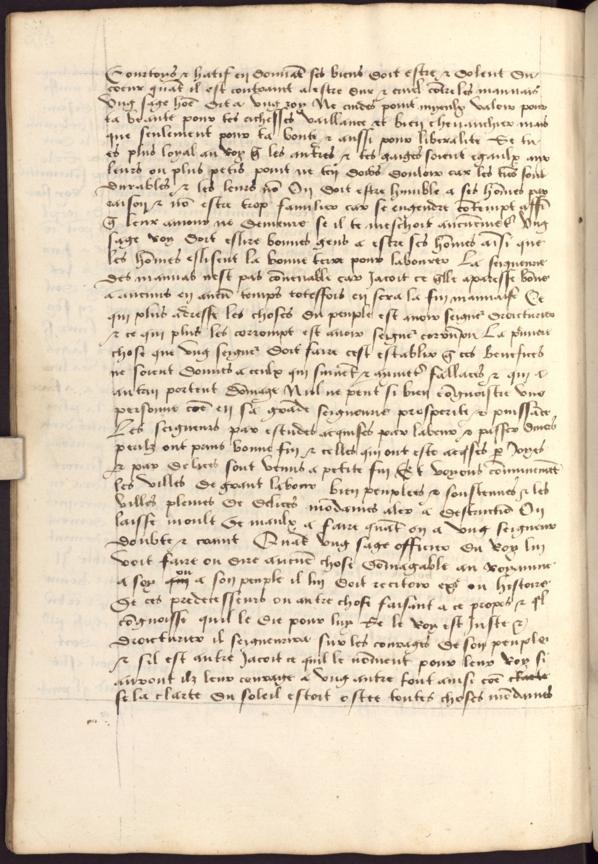 Courtoys & hatif en donnāt ses biens doit estre & dolent du
coeur quāt il est contraint a estre dur & cruel cōtre les mauuais
Ung sage hōe dit a ung roy Ne cuides point myeulx valoir pour
ta beaute pour tes richesses vaillance et bien cheuauchier mais
que seulement pour ta bonte & aussi pour liberalite Se tu
es plus loyal au roy q̄ les aultres & tes gaiges soient egaulx aux
leurs ou plus petis point ne ten dois douloir car les tiēs sont
durables & les leurs nō On doit estre humble a ses hōmes par
raison & nō estre trop familier car se engendre cōtempt affī
q̄ leur amour ne demeure se il te meschoit aucunemēt Ung
sage roy doit eslire bonnes gens a estre ses hōmes aīsi que
les hōmes eslisent la bonne terre pour labourer La seigneurie
des mauuais nest pas cōuenable car Jacoit ce q̄lle aparesse bōne
a aucuns en aucū temps toteffois en sera la fin mauuaise Ce
qui plus adresse les choses du peuple est auoir seigneʳ droicturier
& ce qui plus les corrompt est auoir seigneʳ corrūpu La p̄miere
chose que ung seigneʳ doit faire cest establir q̄ ces benefices
ne soient donnes a ceulx qui suiuēt & aymēt fallaces & qui a
autrui portent dōmage Nul ne peut si bien cōgnoistre une
personne cōe en sa grāde seigneurie prosperite & puissāce
Les seigneurs par estudes acquises par labeur & passer diuers
perilz ont prins bonne fin & celles qui ont este acq̄ses p̄ Joyes
& par delices sont venus a petite fin Et voyons cōmunemēt
les villes de grant labour bien peuplees & soustenues & les
villes pleines de delices mōdaines aler a destructiō On
laisse moult de maulx a faire quāt on a ung seigneur
doubte & craint Quāt ung sage officier du roy lui
voit faire ou dire aucune chose dōmagable au royaume
a soy ou a son peuple il lui doit reciter exē ou histoire
de ces predecesseurs ou autre chose faisant a ce propos & q̄l
cōgnoisse quil le die pour luy Se le roy est Juste &
droicturier il seigneurira sur les courages de son peuple
& sil est autre Jacoit ce quil le nōment pour leur roy si
auront ilz leur courage a ung autre tout ainsi cōe
se la clarte du soleil estoit ostee toutes choses mōdaines